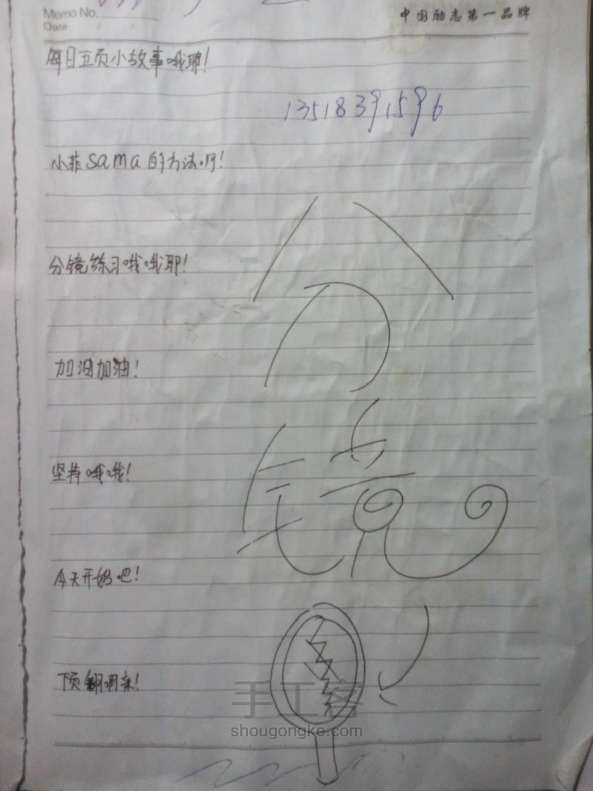 Memo No.
Date
中国励志第一品牌
每日五页小故事哦耶!
13518391596
小菲sama的方法呀!
分镜练习哦哦耶!
加油加油!
坚持哦哦!
分
镜
今天开始吧!
下页
手工客
shougongke.com